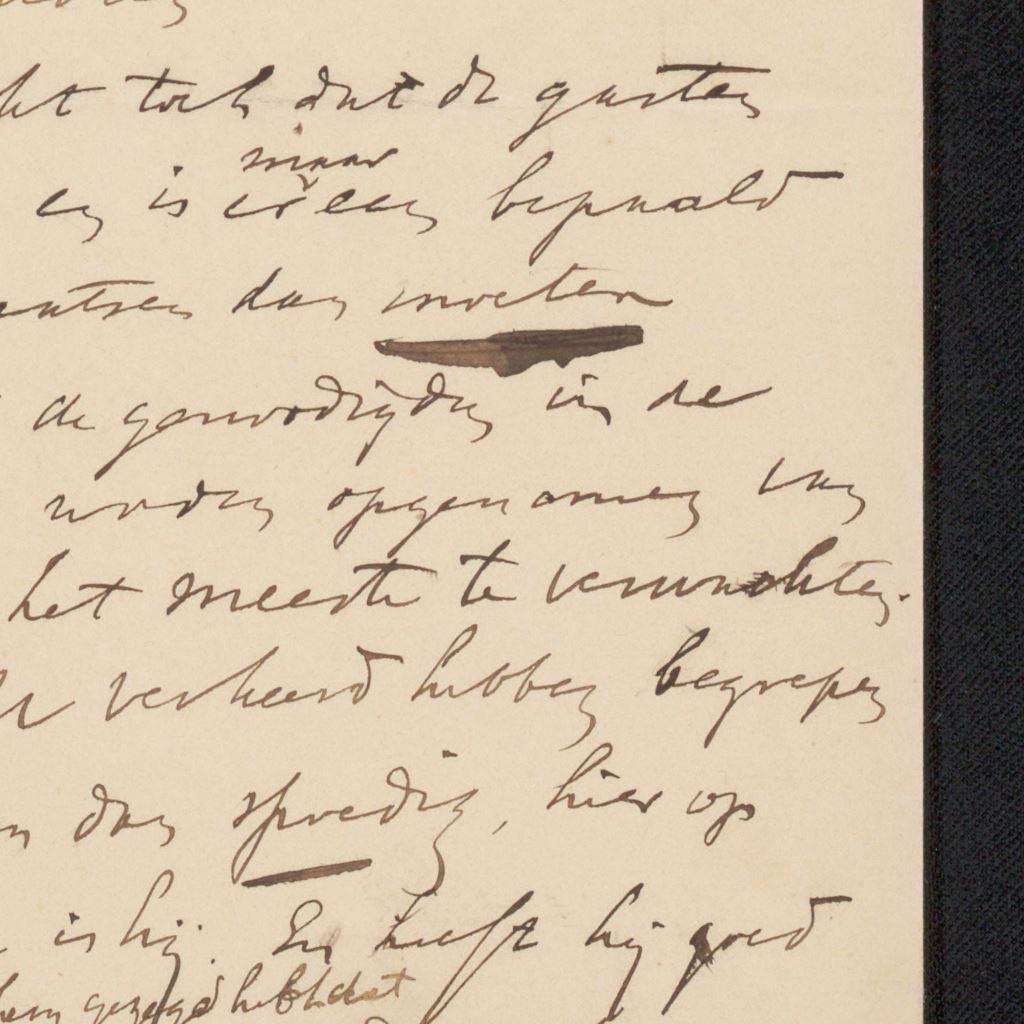 toch dat de gasten
maar
en is er een bepaald
dan moeten
de genoodigden in de
worden opgenomen van
het meeste te verwachten.
verkeerd hebben begrepen
dan spoedig, hier op
is hij. En heeft hij goed
gezegd hebt dat